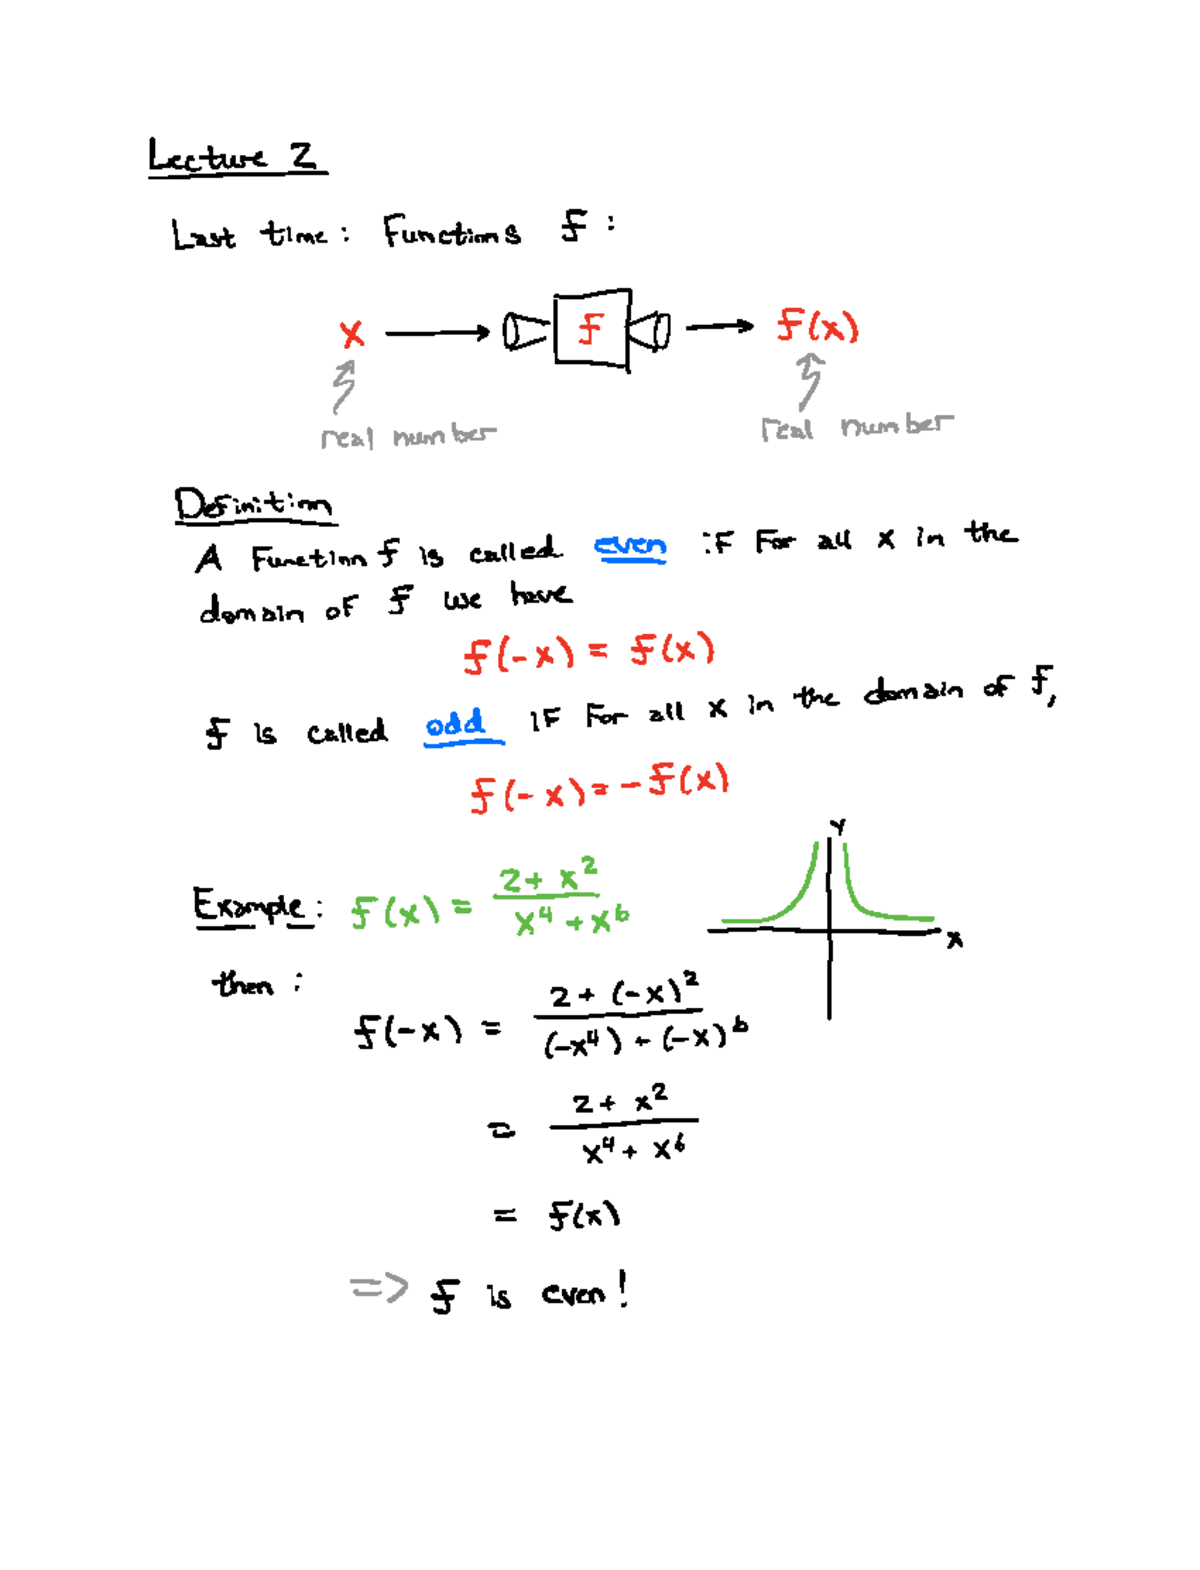 Lecture 2
Last time: Functions f:
x → f → f(x)
real number real number
Definition
A Function f is called even if for all x in the
domain of f we have
f(-x) = f(x)
f is called odd if for all x in the domain of f,
f(-x) = -f(x)
y
Example: f(x) = (2 + x²)/(x⁴ + x⁶)
x
then:
f(-x) = (2 + (-x)²)/((-x⁴) + (-x)⁶)
= (2 + x²)/(x⁴ + x⁶)
= f(x)
=> f is even!